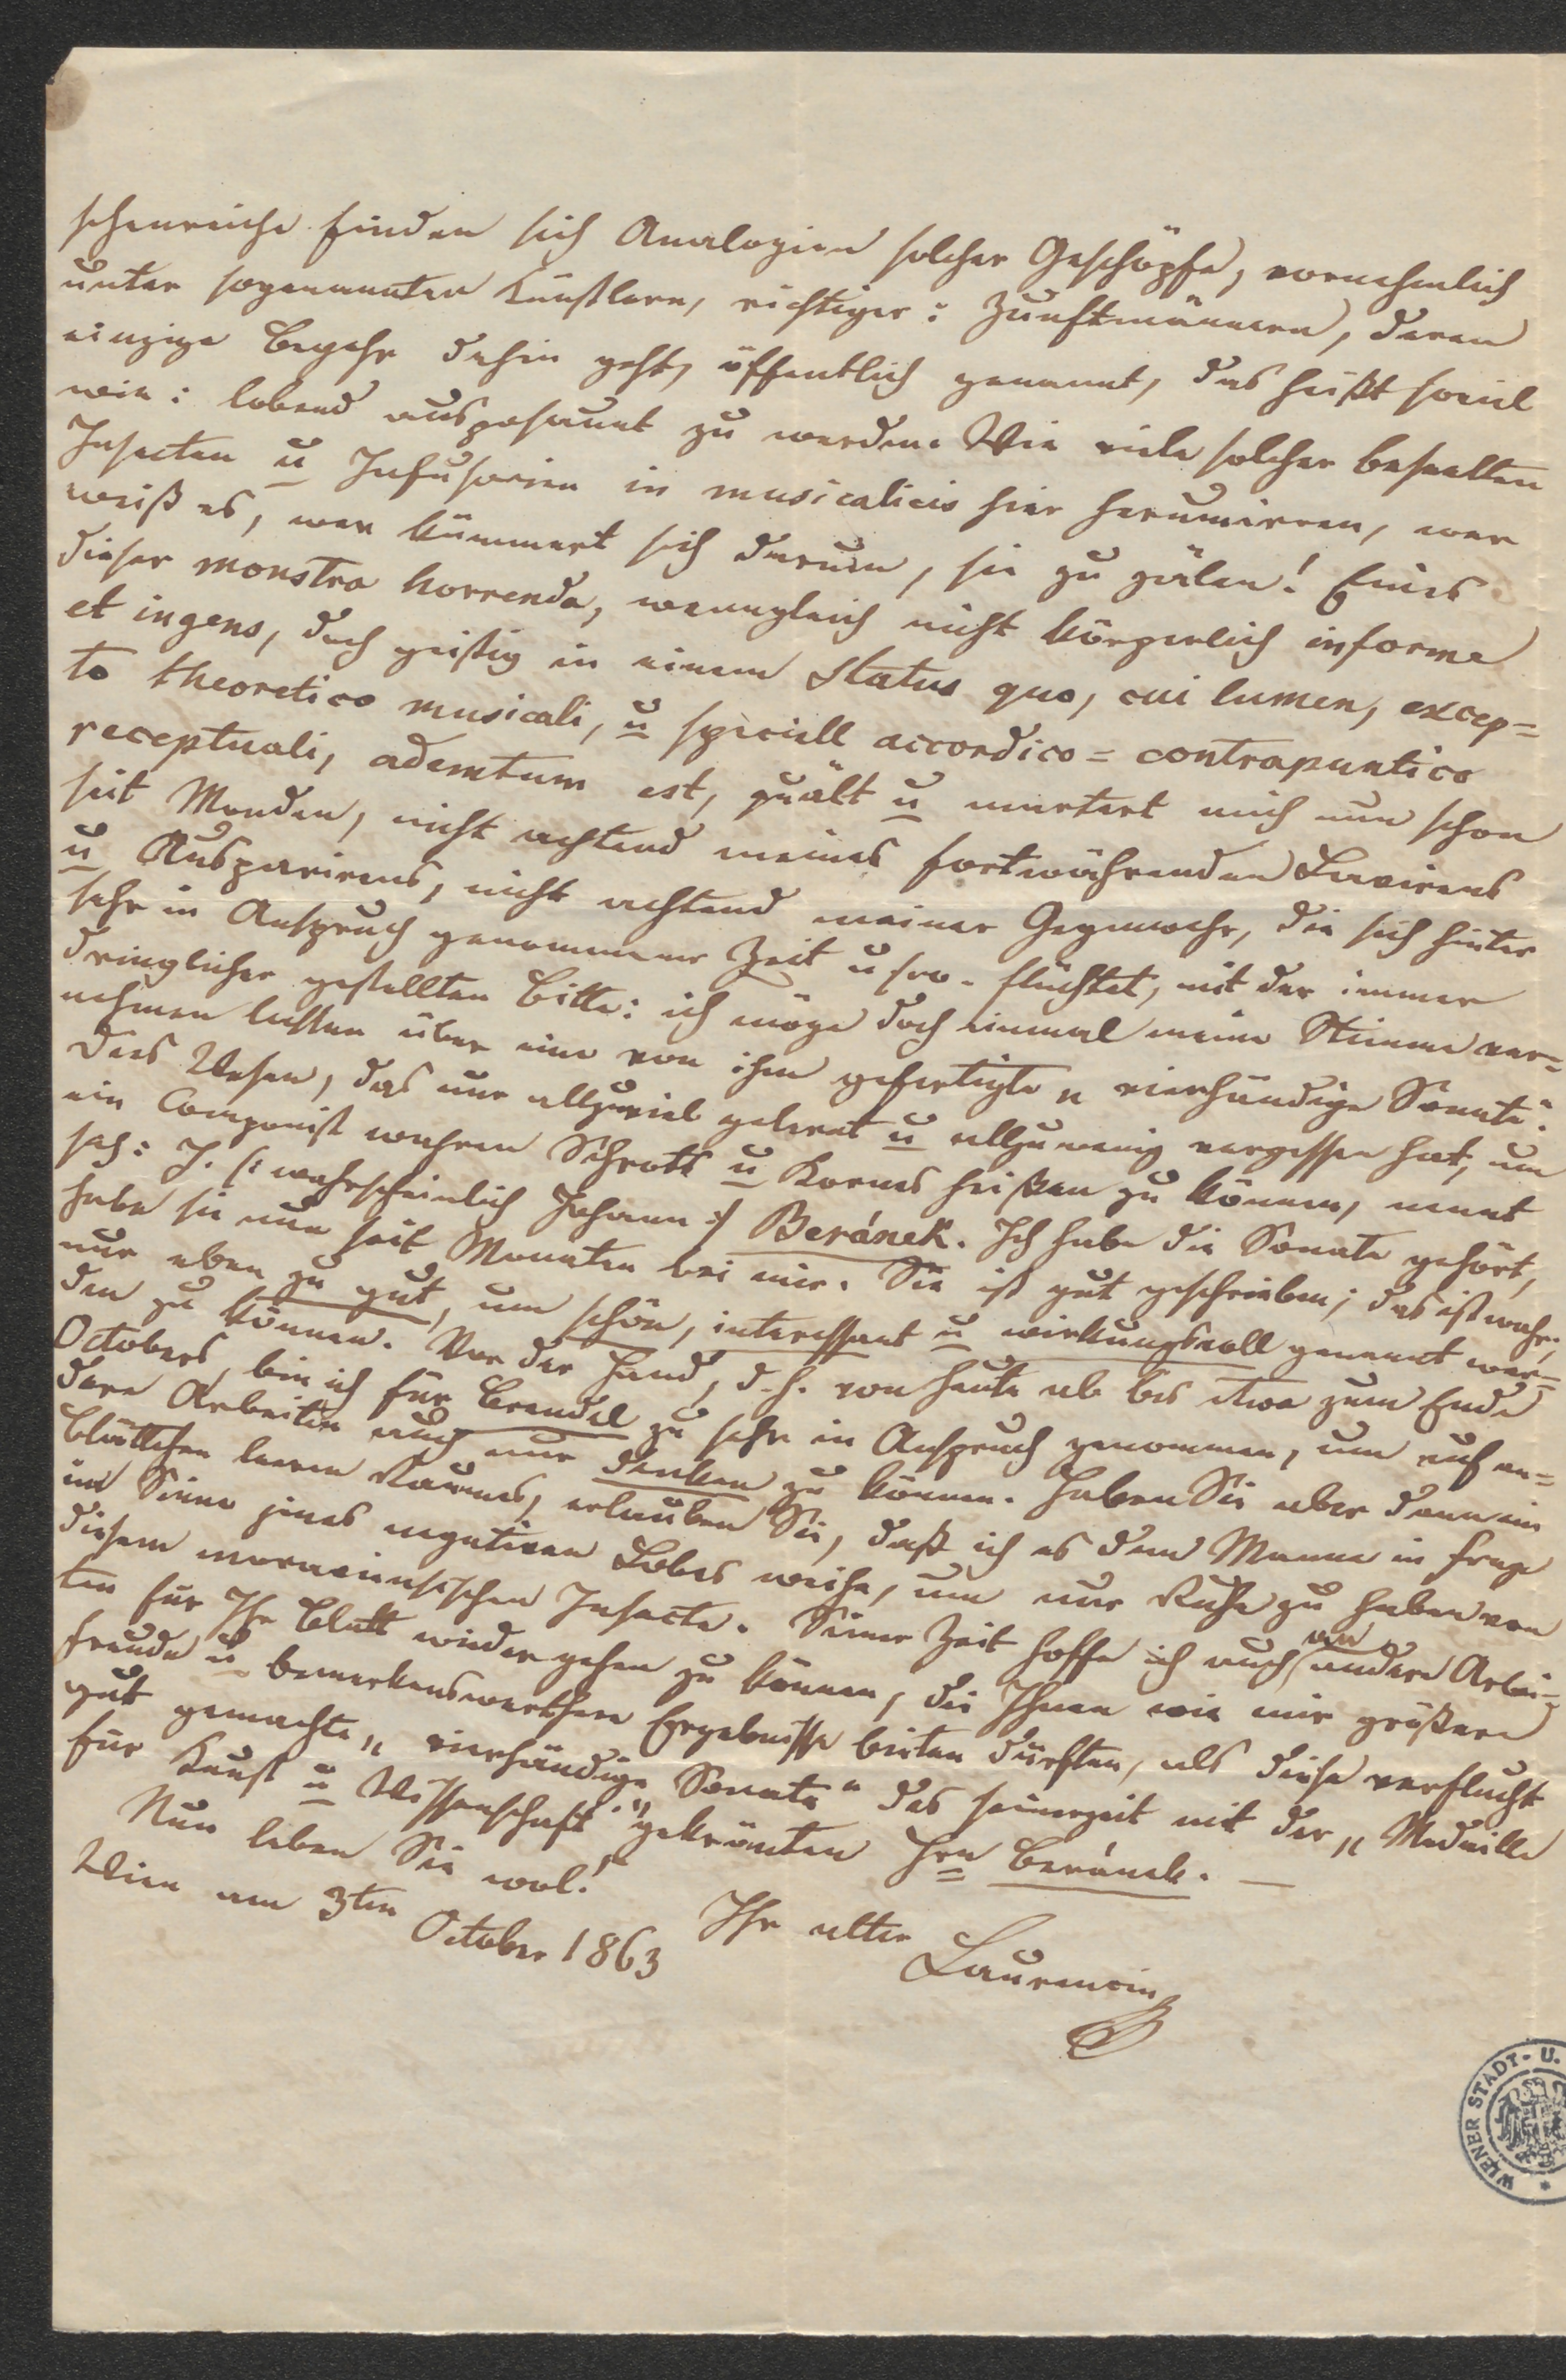 schenreiche finden sich Analogien solcher Geschöpfe, vornehmlich
unter sogenannten Künstlern, richtiger: Zunftmännern, deren
einzige Begehr dahin geht, öffentlich genannt, das heißt soviel
wie: lobend ausposaunt zu werden. Wie viele solcher beseelten
Insecten u Infusorien in musicalicis hier herumirren, wer
weiß es, wer kümmert sich darum, sie zu zälen! Eines
dieser monstra horrenda, wenngleich nicht körperlich informe
et ingens, doch geistig in einem Status quo, cui lumen, excep=
to theoretico musicali, u speciell accordico=contrapuntico
receptuali, ademtum est, quält u martert mich nun schon
seit Monden, nicht achtend meines fortwährenden Lavirens
u Ausparirens, nicht achtend meiner Gegenwehr, die sich hinter
sehr in Anspruch genommener Zeit u sw. flüchtet, mit der immer
dringlicher gestellten Bitte: ich möge doch einmal meine Stimme ver=
nehmen lassen über eine von ihm gefertigte „vierhändige Sonate".
Dies Wesen, das nur allzuviel gelernt u allzuwenig vergessen hat, um
ein Componist wahren Schrots u Kornes heißen zu können, nennt
sich: J. (: wahrscheinlich Johann :) Beránek. Ich habe die Sonate gehört,
habe sie nun seit Monaten bei mir. Sie ist gut geschrieben; das ist wahr,
nur eben zu gut, um schön, interessant u wirkungsvoll genannt wer=
den zu können. Vor der Hand, d. h. von heute ab bis etwa zum Ende
Octobers, bin ich für Brendel zu sehr in Anspruch genommen, um auf an=
dere Arbeiten auch nur denken zu können. Haben Sie aber dann ein
Blättchen leeren Raumes, erlauben Sie, daß ich es dem Manne in Frage
im Sinne jenes negativen Lobes weihe, um nur Ruhe zu haben von
diesem musikalischen Insecte. Seiner Zeit hoffe ich auch an andere Arbei=
ten für Ihr Blatt wieder gehen zu können, die Ihnen wie mir größere
Freude u bemerkenswerthere Ergebnisse bieten dürften, als diese verflucht
gut gemachte „vierhändige Sonate" des seinerzeit mit der „Medaille
für Kunst u Wissenschaft" gekrönten Hrn Beránek. —
Nun leben Sie wol!
Ihr alter
Laurencin
Wien am 3ten
October 1863
WIENER STADT- U.